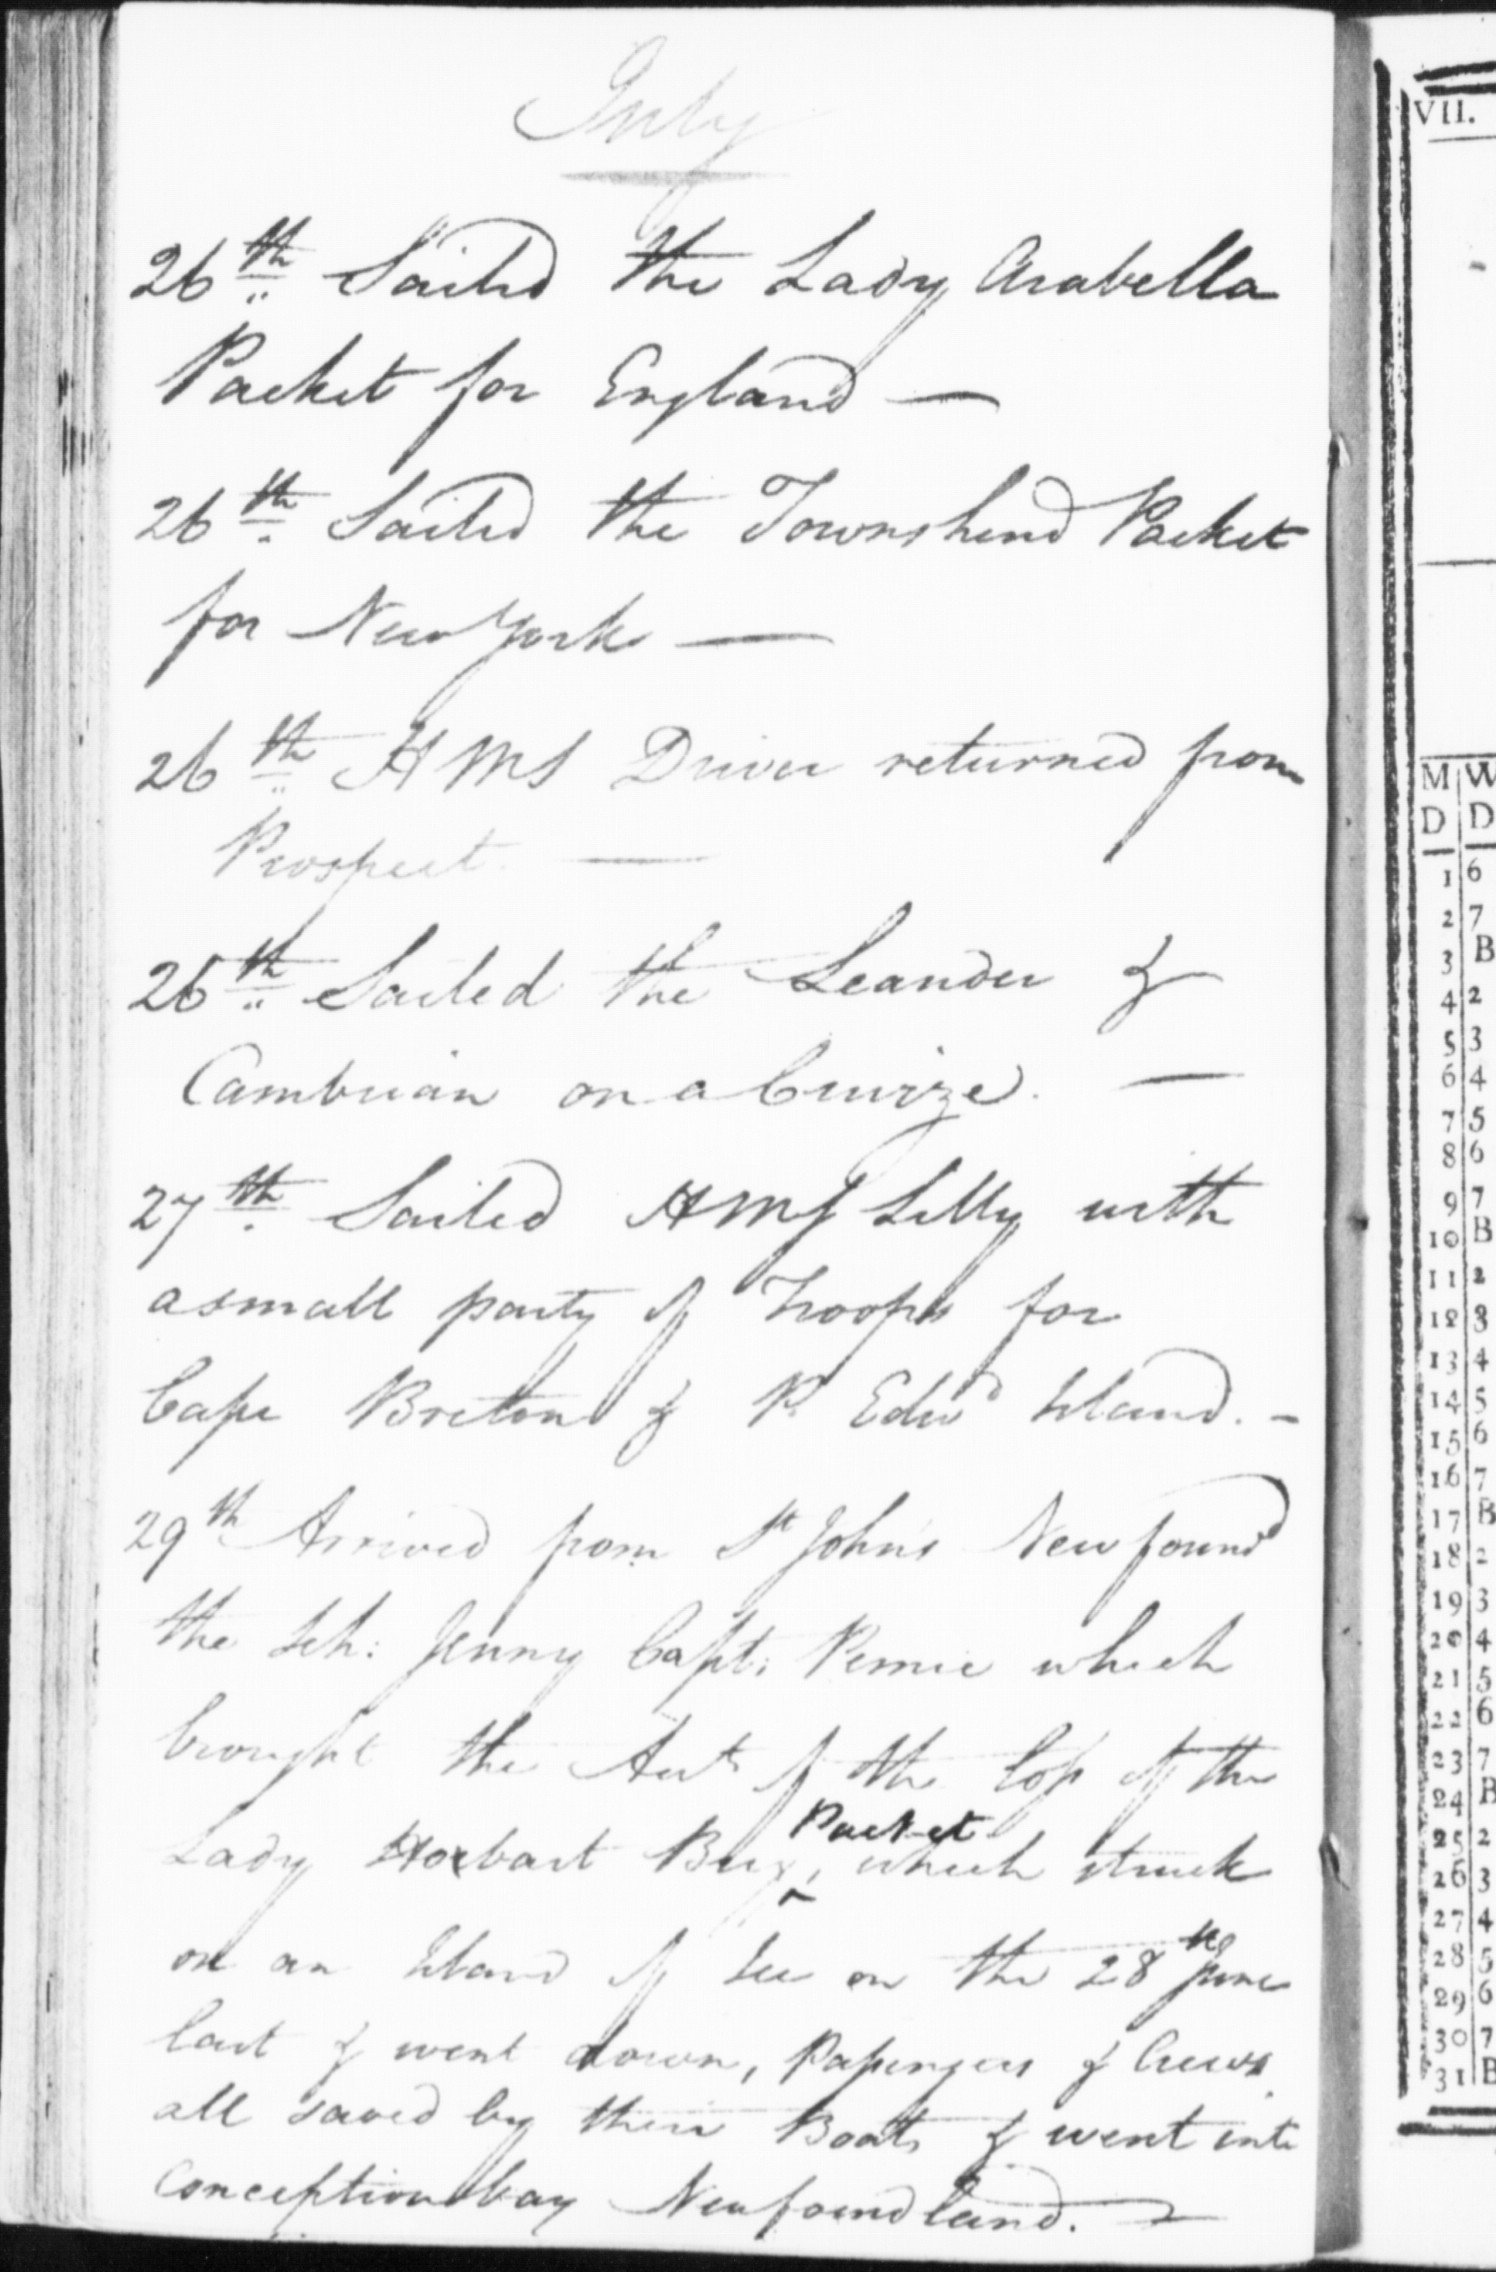 July
26th Sailed the Lady Arabella
Packet for England —
26th Sailed the Townshend Packet
for New York —
26th H M S Driver returned from
Prospect. —
26th Sailed the Leander &
Cambrian on a Cruize. —
27th Sailed HMS Lilly with
a small party of Troops for
Cape Breton & P. Edwd Island. –
29th Arrived from St John's Newfound
the Sch: Jenny Capt: which
brought the Acct of the loss of the
Packet
Lady Hobart Brig, which struck
on an Island of Ice on the 28th June
last & went down, Passengers & Crews
all saved by their Boats & went into
Conception bay Newfoundland. —
VII.
M W
D D
1 6
2 7
3 B
4 2
5 3
6 4
7 5
8 6
9 7
10 B
11 2
12 3
13 4
14 5
15 6
16 7
17 B
18 2
19 3
20 4
21 5
22 6
23 7
24 B
25 2
26 3
27 4
28 5
29 6
30 7
31 B